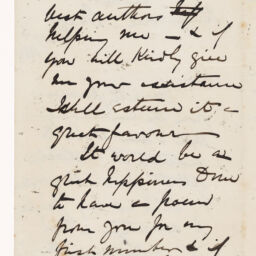 best authors
helping me — & if
you will kindly give
me your assistance
I shall esteem it a
great favour —
It would be a
great happiness to me
to have a poem
from you for my
first number & if